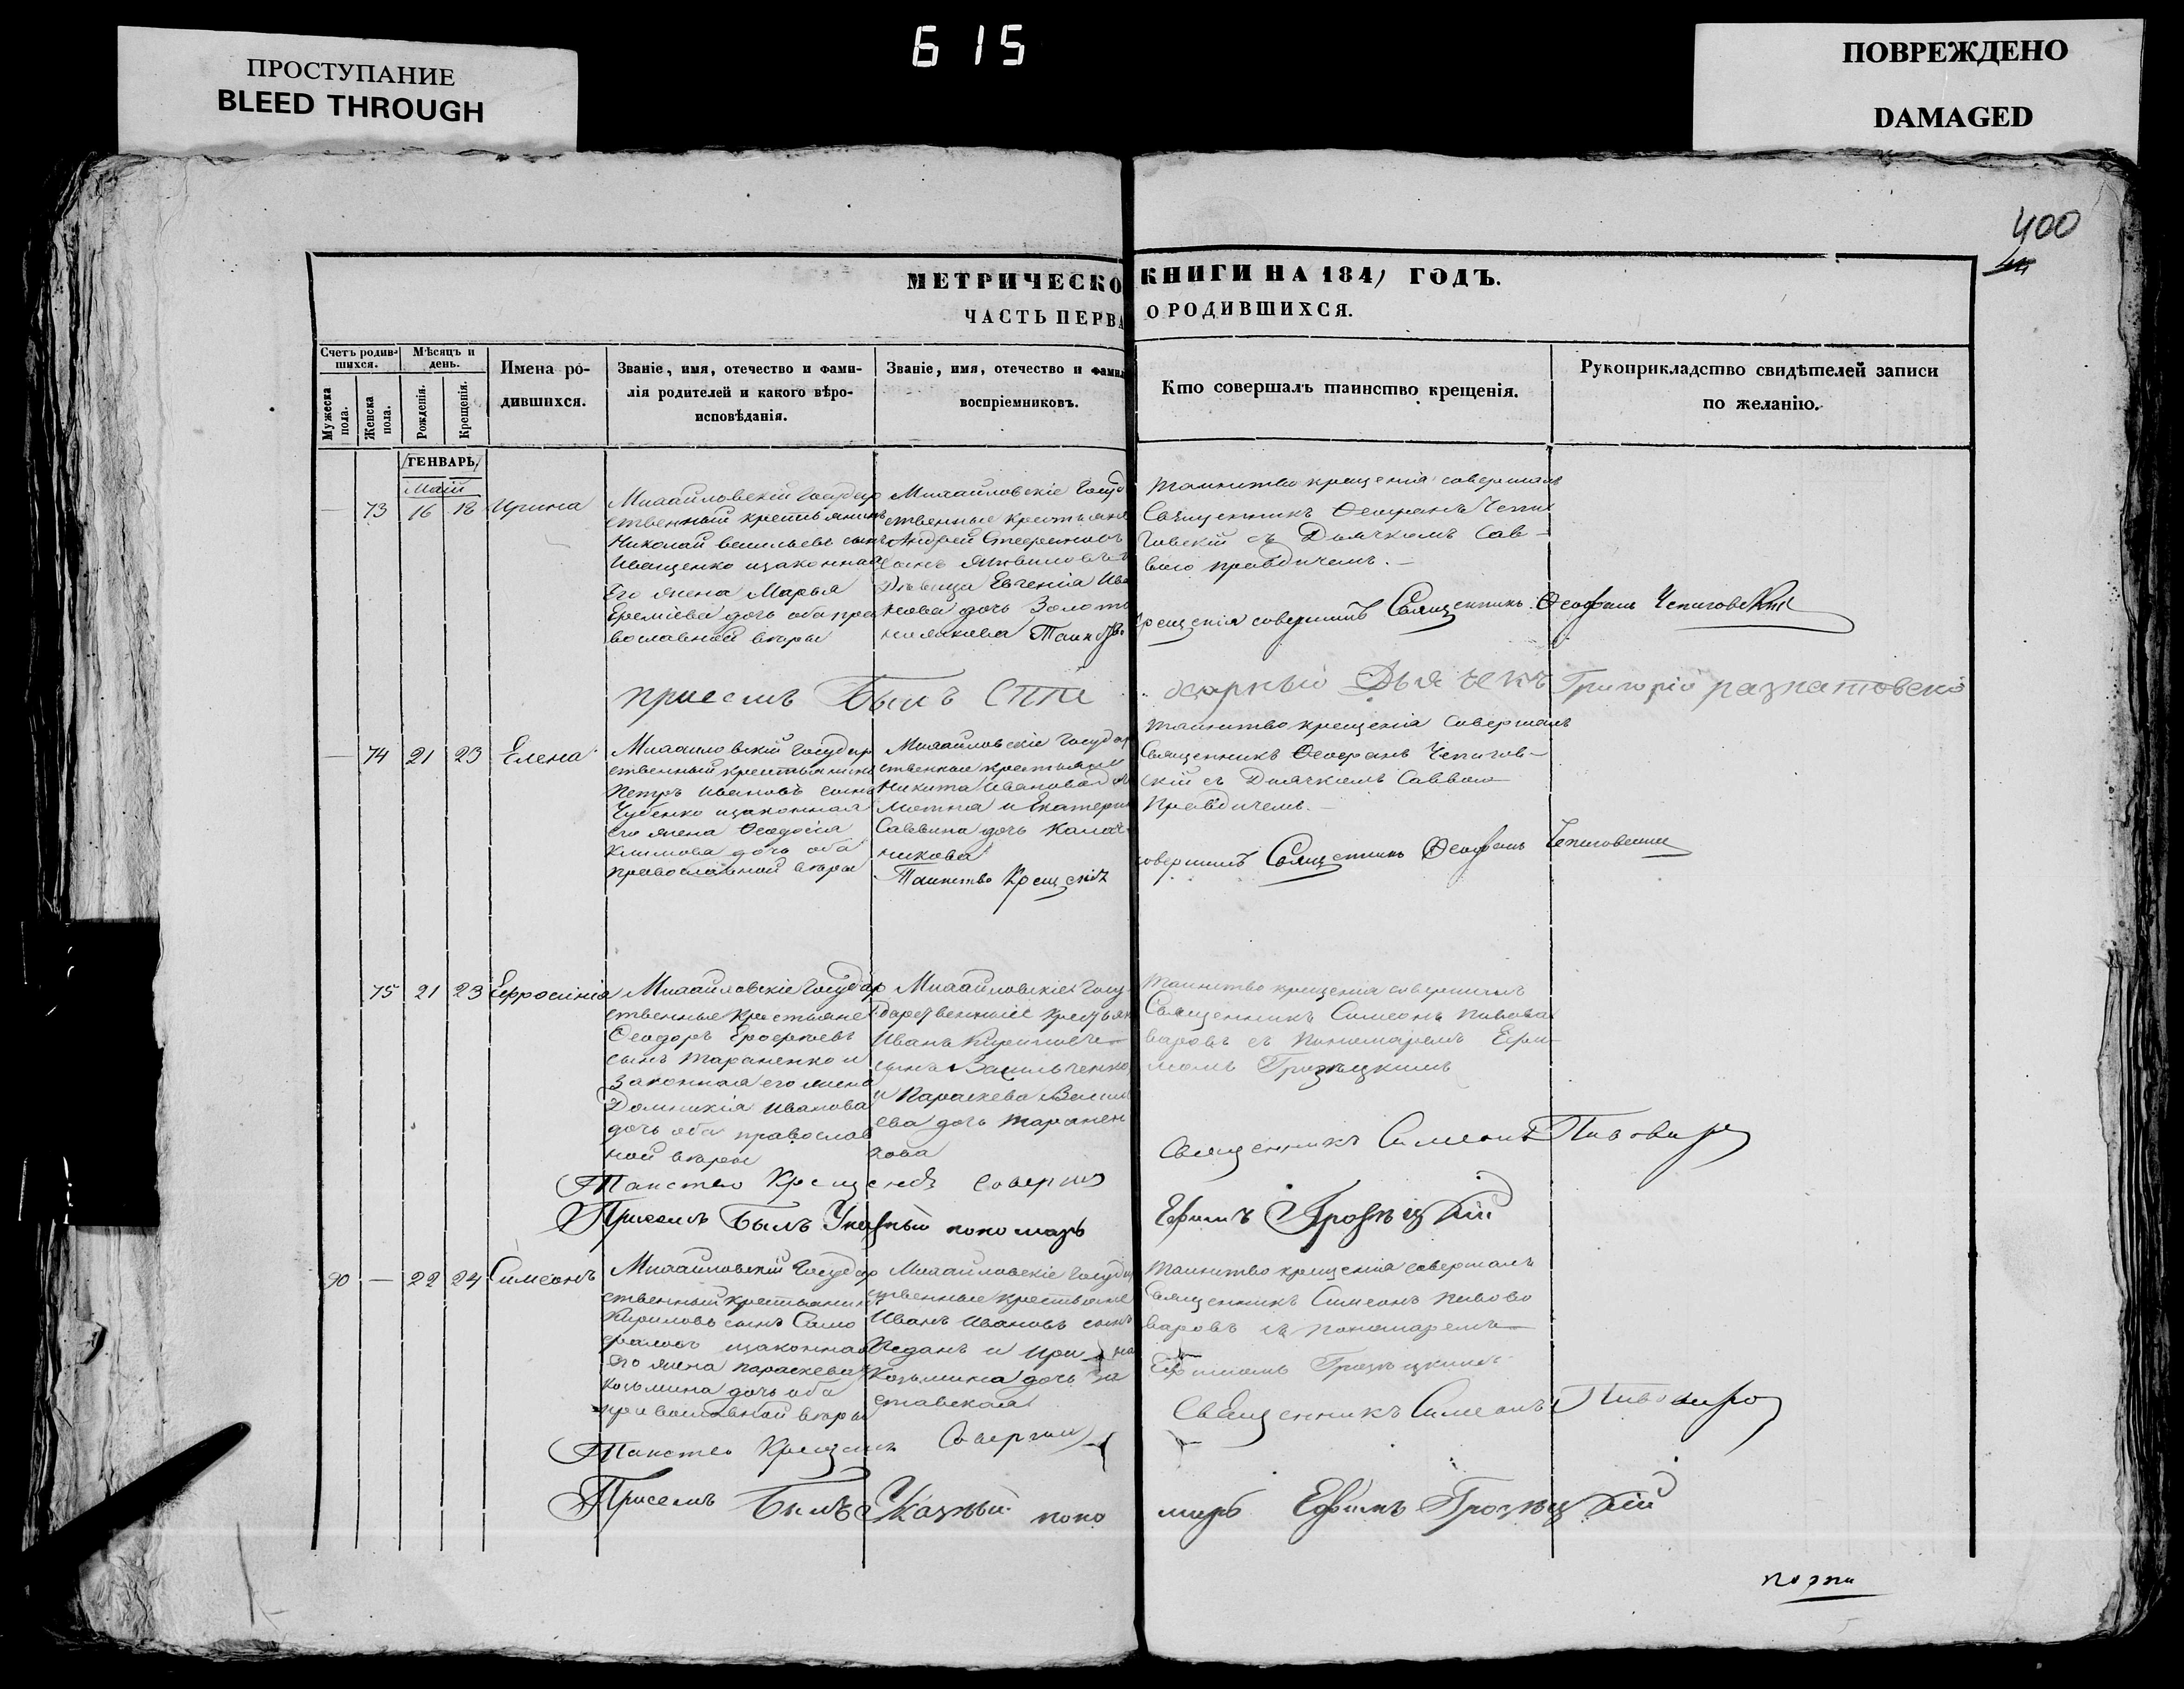 ПРОСТУПАНИЕ
BLEED THROUGH
615
ПОВРЕЖДЕНО
DAMAGED
400
МЕТРИЧЕСКО КНИГИ НА 184, ГОДЪ.
ЧАСТЬ ПЕРВА О РОДИВШИХСЯ.
Счетъ родив-
шихся.
Мужеска
пола.
Женска
пола.
Мѣсяцъ и
день.
Рожденія.
Крещенія.
Имена ро-
дившихся.
Званіе, имя, отечество и фами-
лія родителей и какого вѣро-
исповѣданія.
Званіе, имя, отечество и фамил
воспріемниковъ.
Кто совершалъ таинство крещенія.
Рукоприкладство свидѣтелей записи
по желанію.
ГЕНВАРЬ
Маій
— 73 16 18 Ирина
Михайловскій государ
ственный крестьянинъ
Николай Васильевъ сынъ
Иващенко и законная
его жена Марья
Еремѣева дочь оба пра
вославной вѣры
Михайловскіе Госуд
ственные крестьяне
Андрей Стефановъ
сынъ
Дѣвица Евгенія Ива
нова дочь
Таинство
Таинство крещенія совершалъ
Священникъ Ѳеофанъ Чепи
говскій съ Дьячкомъ Сав-
вою Правдичемъ.
крещенія совершилъ Священникъ Ѳеофанъ Чепиговскій
приемъ Былъ
Дьячекъ Григорій
— 74 21 23 Елена
Михайловскій государ
ственный крестьянинъ
Петръ Ивановъ сынъ
Чубенко и законная
его жена Ѳеодосія
Климова дочь оба
православной вѣры
Михайловскіе государ
ственные крестьяне
Никита Ивановъ
и Екатерин
Саввина дочь Калач
никова
Таинство Крещенія
Таинство крещенія совершалъ
Священникъ Ѳеофанъ Чепигов-
скій съ Дьячкомъ Саввою
Правдичемъ.
совершилъ Священникъ Ѳеофанъ Чепиговскій
75 21 23 Евфросинія
Михайловскіе государ
ственные крестьяне
Ѳеодоръ Ерофѣевъ
сынъ Тараненко и
законная его жена
Домникія Иванова
дочь оба православ
ной вѣры
Михайловскіе госу
дарственные крестьян
Иванъ Кириловъ
сынъ Васильченко
и Параскева Васил
ева дочь Таранен
кова
Таинство крещенія совершилъ
Священникъ Симеонъ Пивова
варовъ съ Пономаремъ Ефи
момъ Грозецкимъ
Священникъ Симеонъ Пивовар
Таинство Крещенія соверши
Приемъ Былъ Указный пономарь
Ефимъ Грозецкій
90 — 22 24 Симеонъ
Михайловскій государ
ственный крестьянинъ
Кириловъ сынъ Само
фаловъ и законная
его жена Параскева
Козьмина дочь оба
православной вѣры
Михайловскіе государ
ственные крестьяне
Иванъ Ивановъ сынъ
и Ирина
Козьмина дочь
Таинство крещенія совершалъ
Священникъ Симеонъ Пивово
варовъ съ пономаремъ
Ефимомъ Грозецкимъ
Священникъ Симеонъ Пивоваро
Таинство Крещенія Соверши
Приемъ Былъ Указный поно
марь Ефимъ Грозецкій